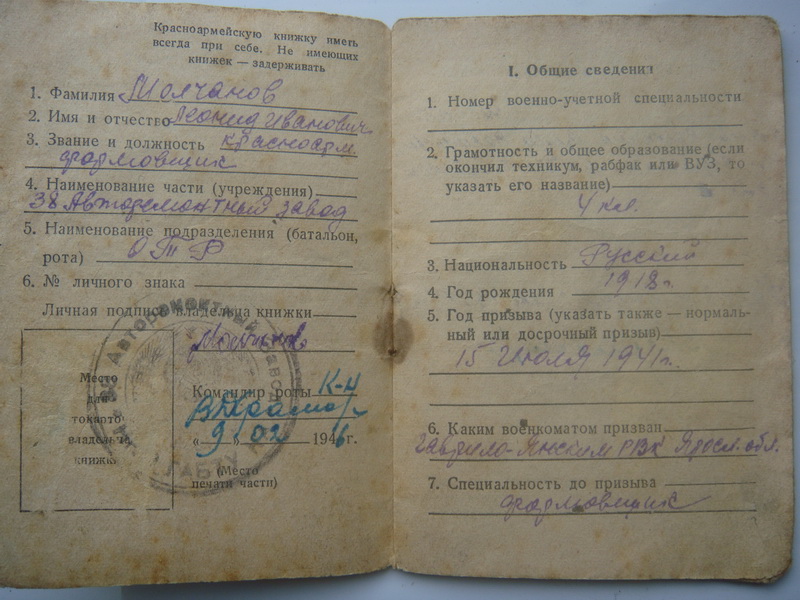 Красноармейскую книжку иметь
всегда при себе. Не имеющих
книжек — задерживать
1. Фамилия Молчанов
2. Имя и отчество Леонид Иванович
3. Звание и должность красноарм.
формовщик
4. Наименование части (учреждения)
38 Авторемонтный завод
5. Наименование подразделения (батальон,
рота) ОТР
6. № личного знака
Личная подпись владельца книжки
Место
для
фотокарточки
владельца
книжки
Командир роты К-н
«9» 02 1946г.
(Место
печати части)
Авторемонтный завод
I. Общие сведения
1. Номер военно-учетной специальности
2. Грамотность и общее образование (если
окончил техникум, рабфак или ВУЗ, то
указать его название)
4 кл.
3. Национальность Русский
4. Год рождения 1918г.
5. Год призыва (указать также — нормаль-
ный или досрочный призыв)
15 Июля 1941г.
6. Каким военкоматом призван
Гаврило-Янским РВК Яросл. обл.
7. Специальность до призыва
формовщик